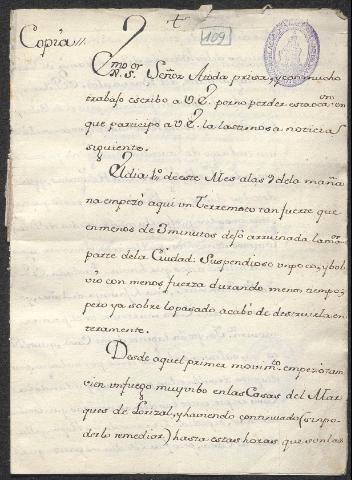 Copia//.
109
Exmo Sor
N. S. Señor A toda prisa, y con mucho
trabajo escribo a V.E. por no perder esta ocaon. en
que participo a V.E. la lastimosa noticia
siguiente.
El dia 1o. de este Mes a las 9 de la maña
na empezò aqui un Terremoto tan fuerte que
en menos de 3 minutos dejò arruinada la mor.
parte de la Ciudad. Suspendiose un poco, y bol
viò con menos fuerza durando menos tiempo;
pero ya sobre lo pasado acabò de destruirla en
teramente.
Desde aquel primer movimto. empezò tam
vien un fuego muy vibo en las Casas del Mar
ques de Lorizal, y haviendo continuado (sin po
derlo remediar) hasta estas horas que son las